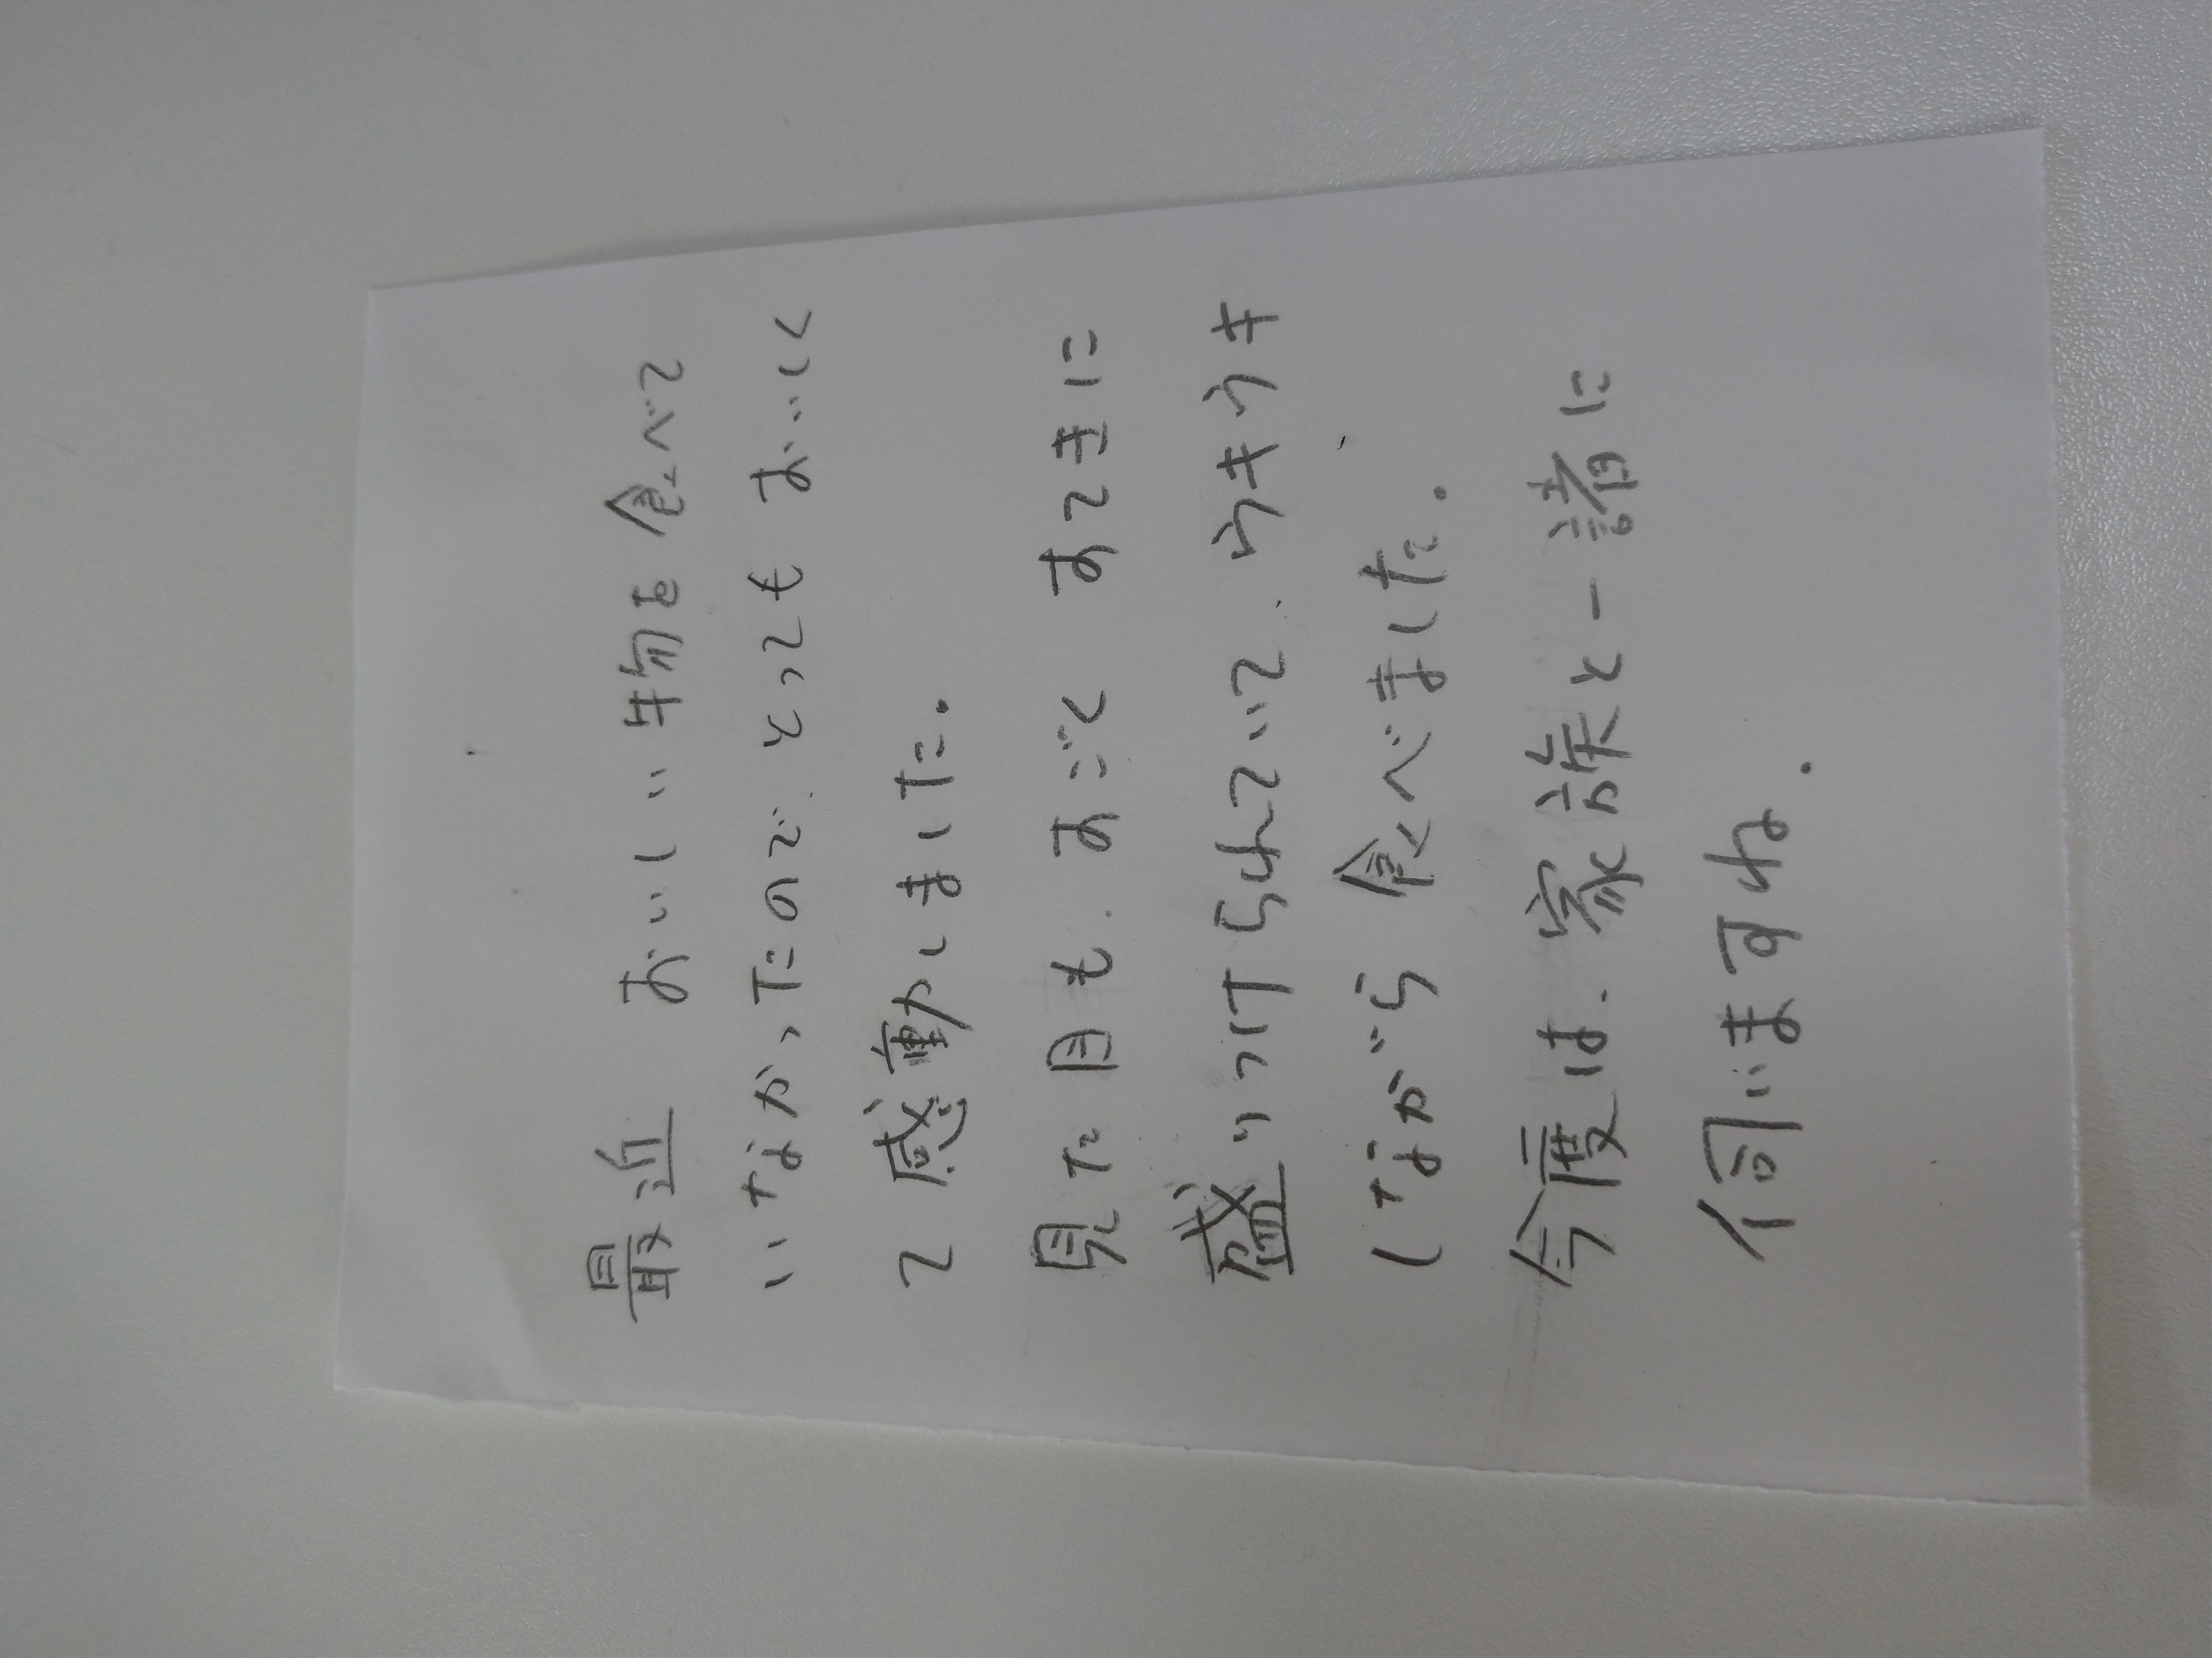 最近 おいしい物を食べて
いなかったので、とっても おいしく
て感動しました。
見た目も、おごく おてきに
盛りつけられていて、ウキウキ
しながら 食べました。
今度は、家族と一諸に
伺いますね。